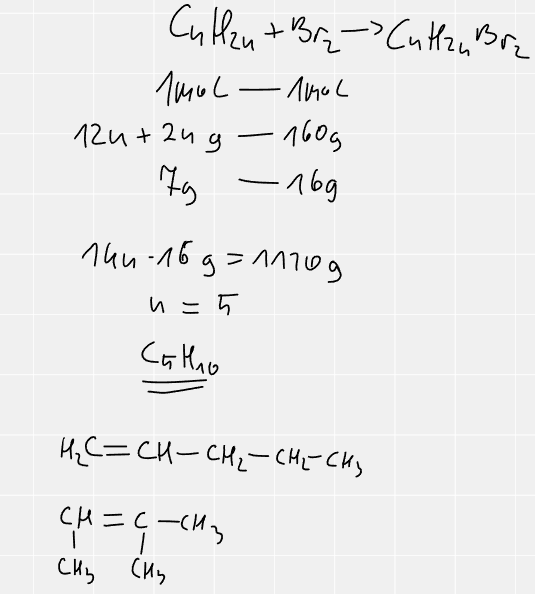 CnH2n + Br2 → CnH2nBr2
1mol — 1mol
12n + 2n g — 160g
7g — 16g
14n · 16 g = 1120g
n = 5
C5H10
H2C=CH—CH2—CH2—CH3
CH=C—CH3
CH3 CH3